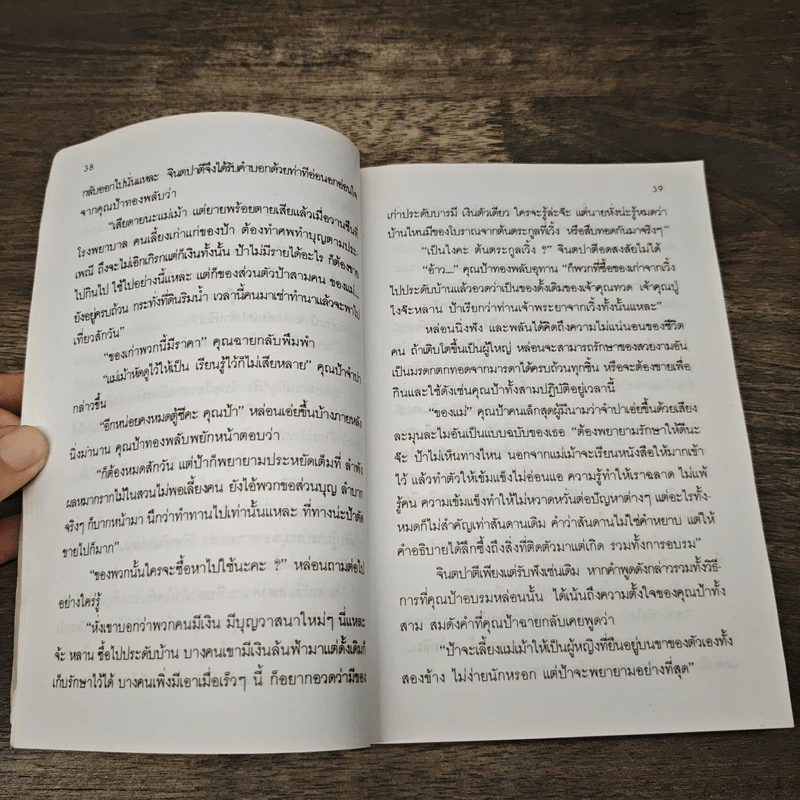 38
กลับออกไปนั่นแหละ จินตปาตีจึงได้รับคำบอกด้วยท่าทีอ่อนอกอ่อนใจ
จากคุณป้าทองพลับว่า
“เสียดายนะแม่เม้า แต่ยายพร้อยตายเสียแล้วเมื่อวานซืนที่
โรงพยาบาล คนเลี้ยงเก่าแก่ของป้า ต้องทำศพทำบุญตามประ-
เพณี ถึงจะไม่เอิกเกริกแต่ก็เงินทั้งนั้น ป้าไม่มีรายได้อะไร ก็ต้องขาย
ไปกินไป ใช้ไปอย่างนี้แหละ แต่ก็ของส่วนตัวป้าสามคน ของแม่...
ยังอยู่ครบถ้วน กระทั่งที่ดินริมน้ำ เวลานี้คนมาเช่าทำนาแล้วจะพาไป
เที่ยวสักวัน”
“ของเก่าพวกนี้มีราคา” คุณฉายกลับพึมพำ
“แม่เม้าหัดดูไว้ให้เป็น เรียนรู้ไว้ก็ไม่เสียหลาย” คุณป้าจำปา
กล่าวขึ้น
“อีกหน่อยคงหมดตู้ซีคะ คุณป้า” หล่อนเอ่ยขึ้นบ้างภายหลัง
นิ่งมานาน คุณป้าทองพลับพยักหน้าตอบว่า
“ก็ต้องหมดสักวัน แต่ป้าก็พยายามประหยัดเต็มที่ ลำพัง
ผลหมากรากไม้ในสวนไม่พอเลี้ยงคน ยังไอ้พวกขอส่วนบุญ ลำบาก
จริงๆ ก็บากหน้ามา นึกว่าทำทานไปเท่านั้นแหละ ที่ทางน่ะป้าตัด
ขายไปก็มาก”
“ของพวกนั้นใครจะซื้อหาไปใช้นะคะ ?” หล่อนถามต่อไป
อย่างใคร่รู้
“หังเขาบอกว่าพวกคนมีเงิน มีบุญวาสนาใหม่ๆ นี่แหละ
จ้ะ หลาน ซื้อไปประดับบ้าน บางคนเขามีเงินล้นฟ้ามาแต่ดั้งเดิมก็
เก็บรักษาไว้ได้ บางคนเพิ่งมีเอาเมื่อเร็วๆ นี้ ก็อยากอวดว่ามีของ
39
เก่าประดับบารมี เงินตัวเดียว ใครจะรู้ล่ะจ๊ะ แต่นายหังน่ะรู้หมดว่า
บ้านไหนมีของโบราณจากต้นตระกูลที่เวิ้ง หรือสืบทอดกันมาจริงๆ”
“เป็นไงคะ ต้นตระกูลเวิ้ง ?” จินตปาตีอดสงสัยไม่ได้
“อ้าว...” คุณป้าทองพลับอุทาน “ก็พวกที่ซื้อของเก่าจากเวิ้ง
ไปประดับบ้านแล้วอวดว่าเป็นของดั้งเดิมของเจ้าคุณทวด เจ้าคุณปู่
ไงจ๊ะหลาน ป้าเรียกว่าท่านเจ้าพระยาจากเวิ้งทั้งนั้นแหละ”
หล่อนนิ่งฟัง และพลันได้คิดถึงความไม่แน่นอนของชีวิต
คน ถ้าเติบโตขึ้นเป็นผู้ใหญ่ หล่อนจะสามารถรักษาของสวยงามอัน
เป็นมรดกตกทอดจากมารดาได้ครบถ้วนทุกชิ้น หรือจะต้องขายเพื่อ
กินและใช้ดังเช่นคุณป้าทั้งสามปฏิบัติอยู่เวลานี้
“ของแม่” คุณป้าคนเล็กสุดผู้มีนามว่าจำปาเอ่ยขึ้นด้วยเสียง
ละมุนละไมอันเป็นแบบฉบับของเธอ “ต้องพยายามรักษาให้ดีนะ
จ๊ะ ป้าไม่เห็นทางไหน นอกจากแม่เม้าจะเรียนหนังสือให้มากเข้า
ไว้ แล้วทำตัวให้เข้มแข็งไม่อ่อนแอ ความรู้ทำให้เราฉลาด ไม่แพ้
รู้คน ความเข้มแข็งทำให้ไม่หวาดหวั่นต่อปัญหาต่างๆ แต่อะไรทั้ง-
หมดก็ไม่สำคัญเท่าสันดานเดิม คำว่าสันดานไม่ใช่คำหยาบ แต่ให้
คำอธิบายได้ลึกซึ้งถึงสิ่งที่ติดตัวมาแต่เกิด รวมทั้งการอบรม”
จินตปาตีเพียงแต่รับฟังเช่นเดิม หากคำพูดดังกล่าวรวมทั้งวิธี-
การที่คุณป้าอบรมหล่อนนั้น ได้เน้นถึงความตั้งใจของคุณป้าทั้ง
สาม สมดังคำที่คุณป้าฉายกลับเคยพูดว่า
“ป้าจะเลี้ยงแม่เม้าให้เป็นผู้หญิงที่ยืนอยู่บนขาของตัวเองทั้ง
สองข้าง ไม่ง่ายนักหรอก แต่ป้าจะพยายามอย่างที่สุด”